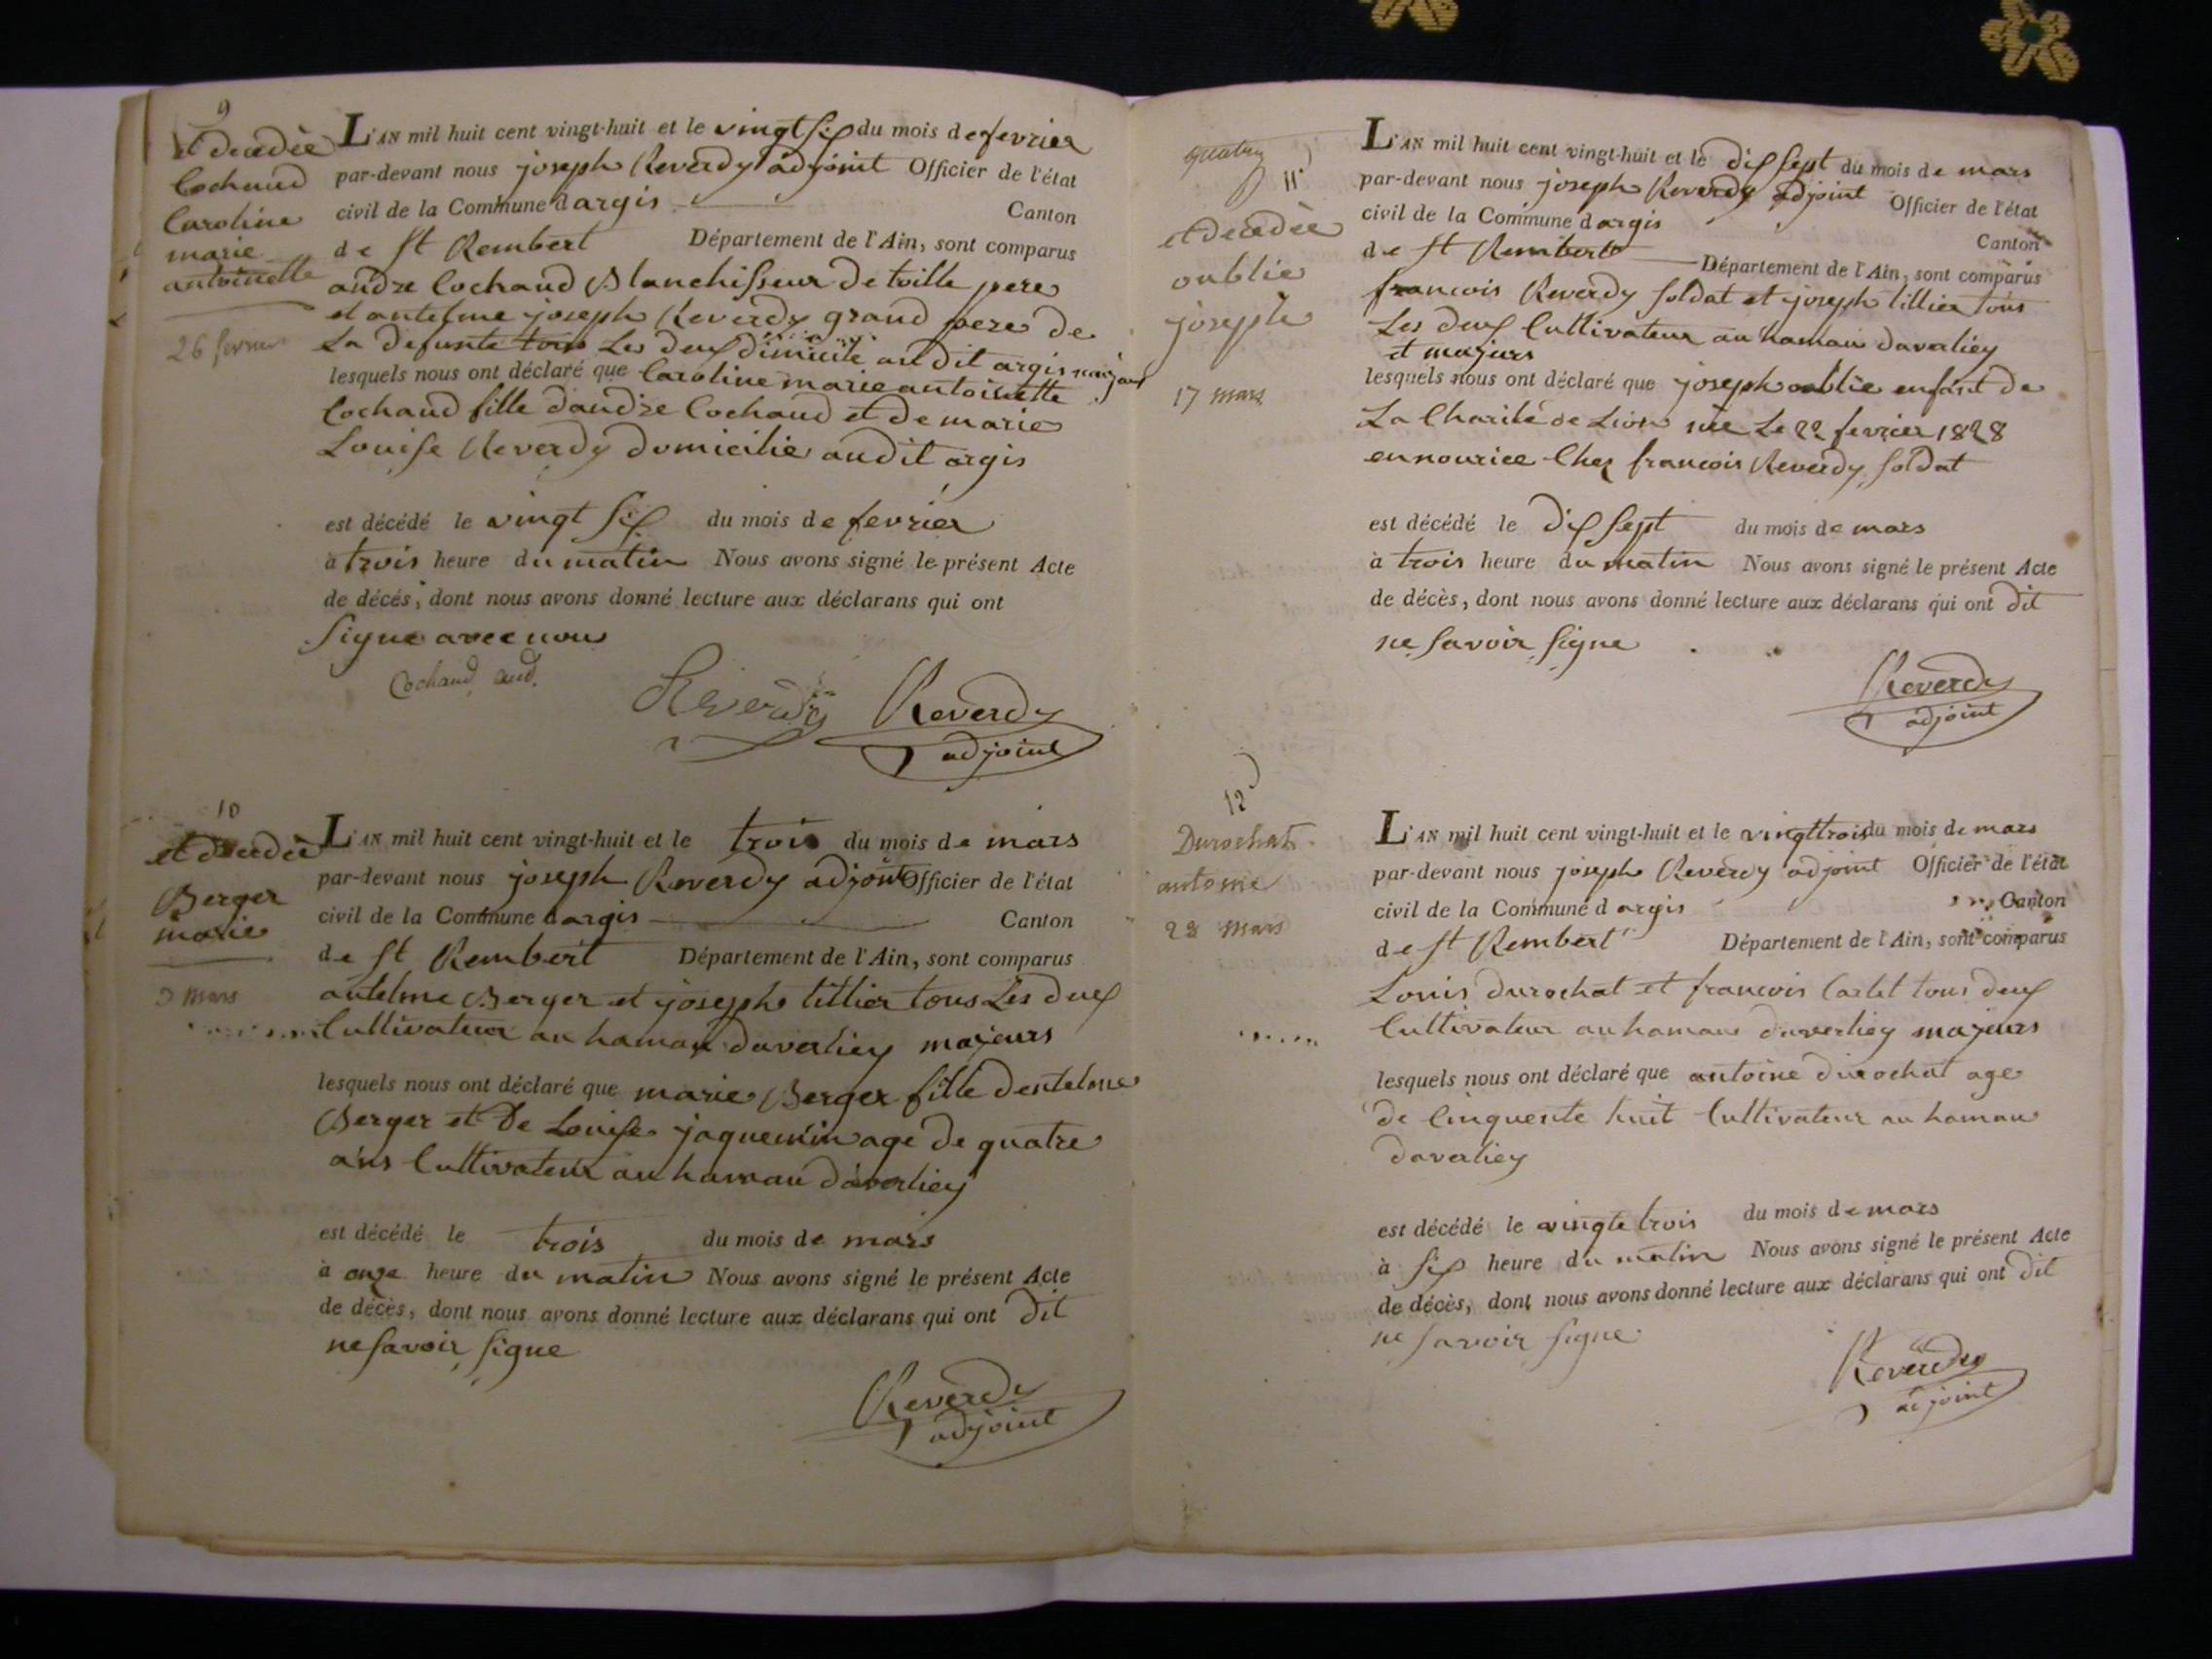 9
et decedèe
Cochaud
Caroline
marie
antoinette
26 fevrier
L'AN mil huit cent vingt-huit et le vingt six du mois de fevrier
par-devant nous joseph Reverdy adjoint Officier de l'état
civil de la Commune dargis Canton
de St Rembert Département de l'Ain, sont comparus
andre Cochaud Blanchisseur de toille pere
et antelme joseph Reverdy grand pere de
La defunte tous Les deux dimicilé audit argis majeurs
lesquels nous ont déclaré que Caroline marie antoinette
Cochaud fille dandre Cochaud et de marie
Louise Reverdy domicilié audit argis
est décédé le vingt six du mois de fevrier
à trois heure du matin Nous avons signé le présent Acte
de décés, dont nous avons donné lecture aux déclarans qui ont
signe avec nous
Cochaud and.
Reverdy
Reverdy
adjoint
10
et decedèe
Berger
marie
3 mars
L'AN mil huit cent vingt-huit et le trois du mois de mars
par-devant nous joseph Reverdy adjoint Officier de l'état
civil de la Commune dargis Canton
de St Rembert Département de l'Ain, sont comparus
antelme Berger et joseph tillier tous Les deux
Cultivateur au hamau daverliey majeurs
lesquels nous ont déclaré que marie Berger fille dentelme
Berger et De Louise jaquemin age de quatre
ans Cultivateur au hamau daverliey
est décédé le trois du mois de mars
à onze heure du matin Nous avons signé le présent Acte
de décès, dont nous avons donné lecture aux déclarans qui ont dit
ne savoir signe
Reverdy
adjoint
11
et decedèe
oublie
joseph
17 mars
L'AN mil huit cent vingt-huit et le dix sept du mois de mars
par-devant nous joseph Reverdy adjoint Officier de l'état
civil de la Commune dargis Canton
de St Rembert Département de l'Ain, sont comparus
francois Reverdy soldat et joseph tillier tous
Les deux Cultivateur au hamau daverliey
et majeurs
lesquels nous ont déclaré que joseph oublie enfant de
La Charité de Lion née Le 22 fevrier 1828
en nourice Chez francois Reverdy soldat
est décédé le dix sept du mois de mars
à trois heure du matin Nous avons signé le présent Acte
de décès, dont nous avons donné lecture aux déclarans qui ont dit
ne savoir signe
Reverdy
adjoint
12
Durochat
antoine
23 mars
L'AN mil huit cent vingt-huit et le vingt trois du mois de mars
par-devant nous joseph Reverdy adjoint Officier de l'état
civil de la Commune d argis Canton
de St Rembert Département de l'Ain, sont comparus
Louis durochat et francois Carlet tous deux
Cultivateur au hamau daverliey majeurs
lesquels nous ont déclaré que antoine durochat age
de Cinquente huit Cultivateur au hamau
daverliey
est décédé le vingte trois du mois de mars
à six heure du matin Nous avons signé le présent Acte
de décès, dont nous avons donné lecture aux déclarans qui ont dit
ne savoir signe
Reverdy
adjoint